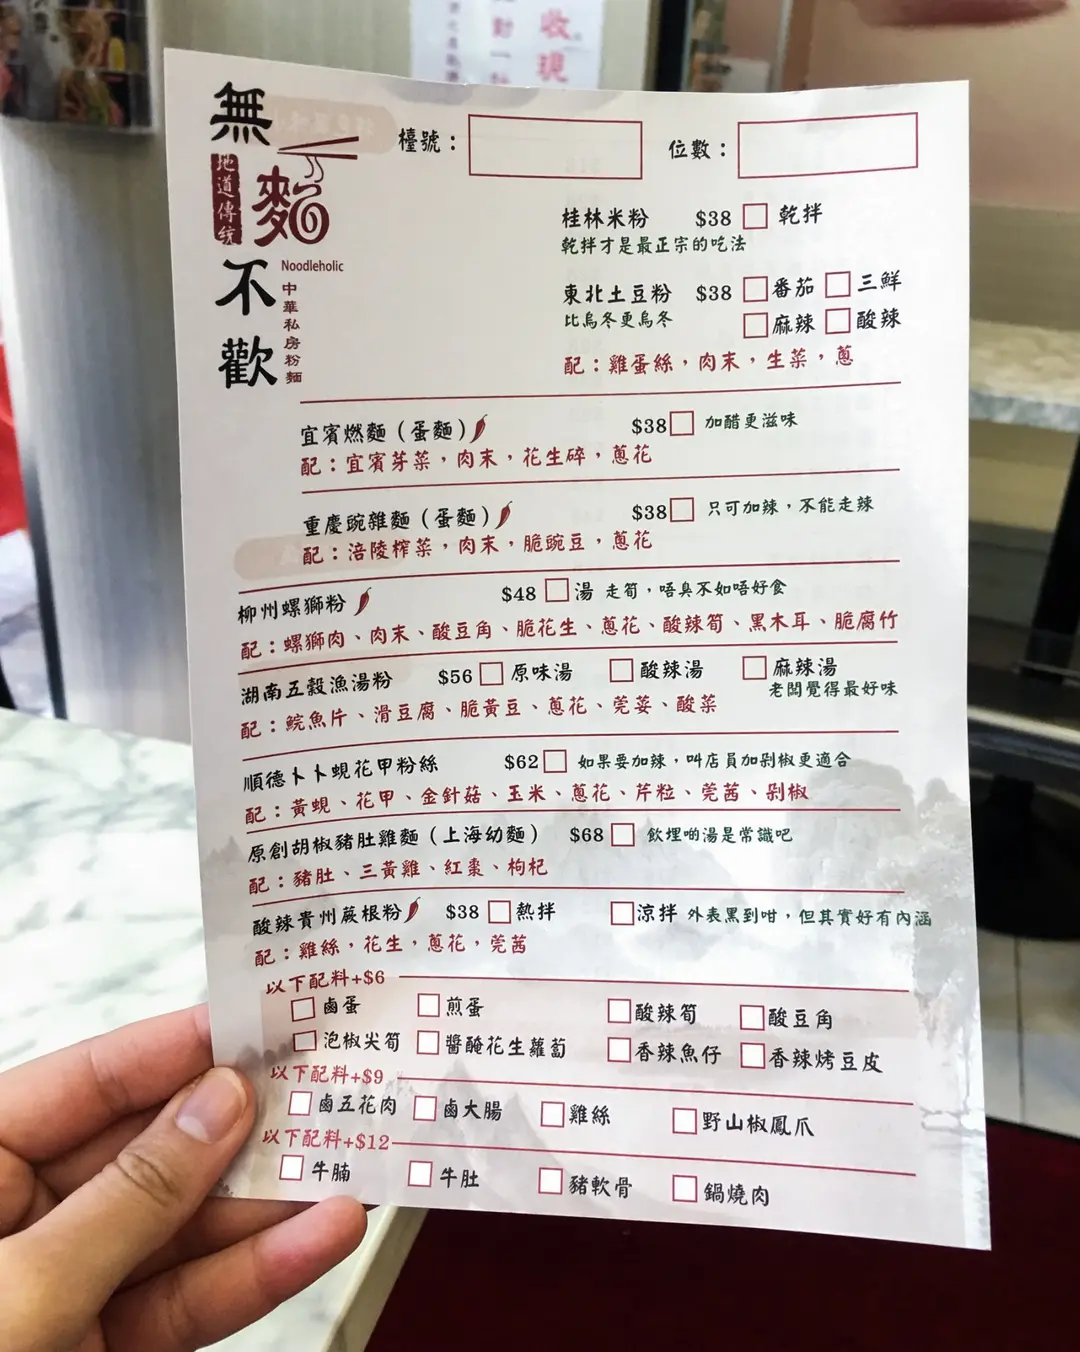 收現
無麵不歡
地道傳統
Noodleholic
中華私房粉麵
檯號：
位數：
桂林米粉 $38 乾拌
乾拌才是最正宗的吃法
東北土豆粉 $38 番茄 三鮮
比烏冬更烏冬 麻辣 酸辣
配：雞蛋絲，肉末，生菜，蔥
宜賓燃麵（蛋麵） $38 加醋更滋味
配：宜賓芽菜，肉末，花生碎，蔥花
重慶豌雜麵（蛋麵） $38 只可加辣，不能走辣
配：涪陵榨菜，肉末，脆豌豆，蔥花
柳州螺獅粉 $48 湯 走筍，唔臭不如唔好食
配：螺獅肉、肉末、酸豆角、脆花生、蔥花、酸辣筍、黑木耳、脆腐竹
湖南五穀漁湯粉 $56 原味湯 酸辣湯 麻辣湯
老闆覺得最好味
配：鯇魚片、滑豆腐、脆黃豆、蔥花、芫荽、酸菜
順德卜卜蜆花甲粉絲 $62 如果要加辣，叫店員加剁椒更適合
配：黃蜆、花甲、金針菇、玉米、蔥花、芹粒、芫茜、剁椒
原創胡椒豬肚雞麵（上海幼麵） $68 飲埋啲湯是常識吧
配：豬肚、三黃雞、紅棗、枸杞
酸辣貴州蕨根粉 $38 熱拌 涼拌 外表黑到咁，但其實好有內涵
配：雞絲，花生，蔥花，芫茜
以下配料+$6
鹵蛋 煎蛋 酸辣筍 酸豆角
泡椒尖筍 醬醃花生蘿蔔 香辣魚仔 香辣烤豆皮
以下配料+$9
鹵五花肉 鹵大腸 雞絲 野山椒鳳爪
以下配料+$12
牛腩 牛肚 豬軟骨 鍋燒肉